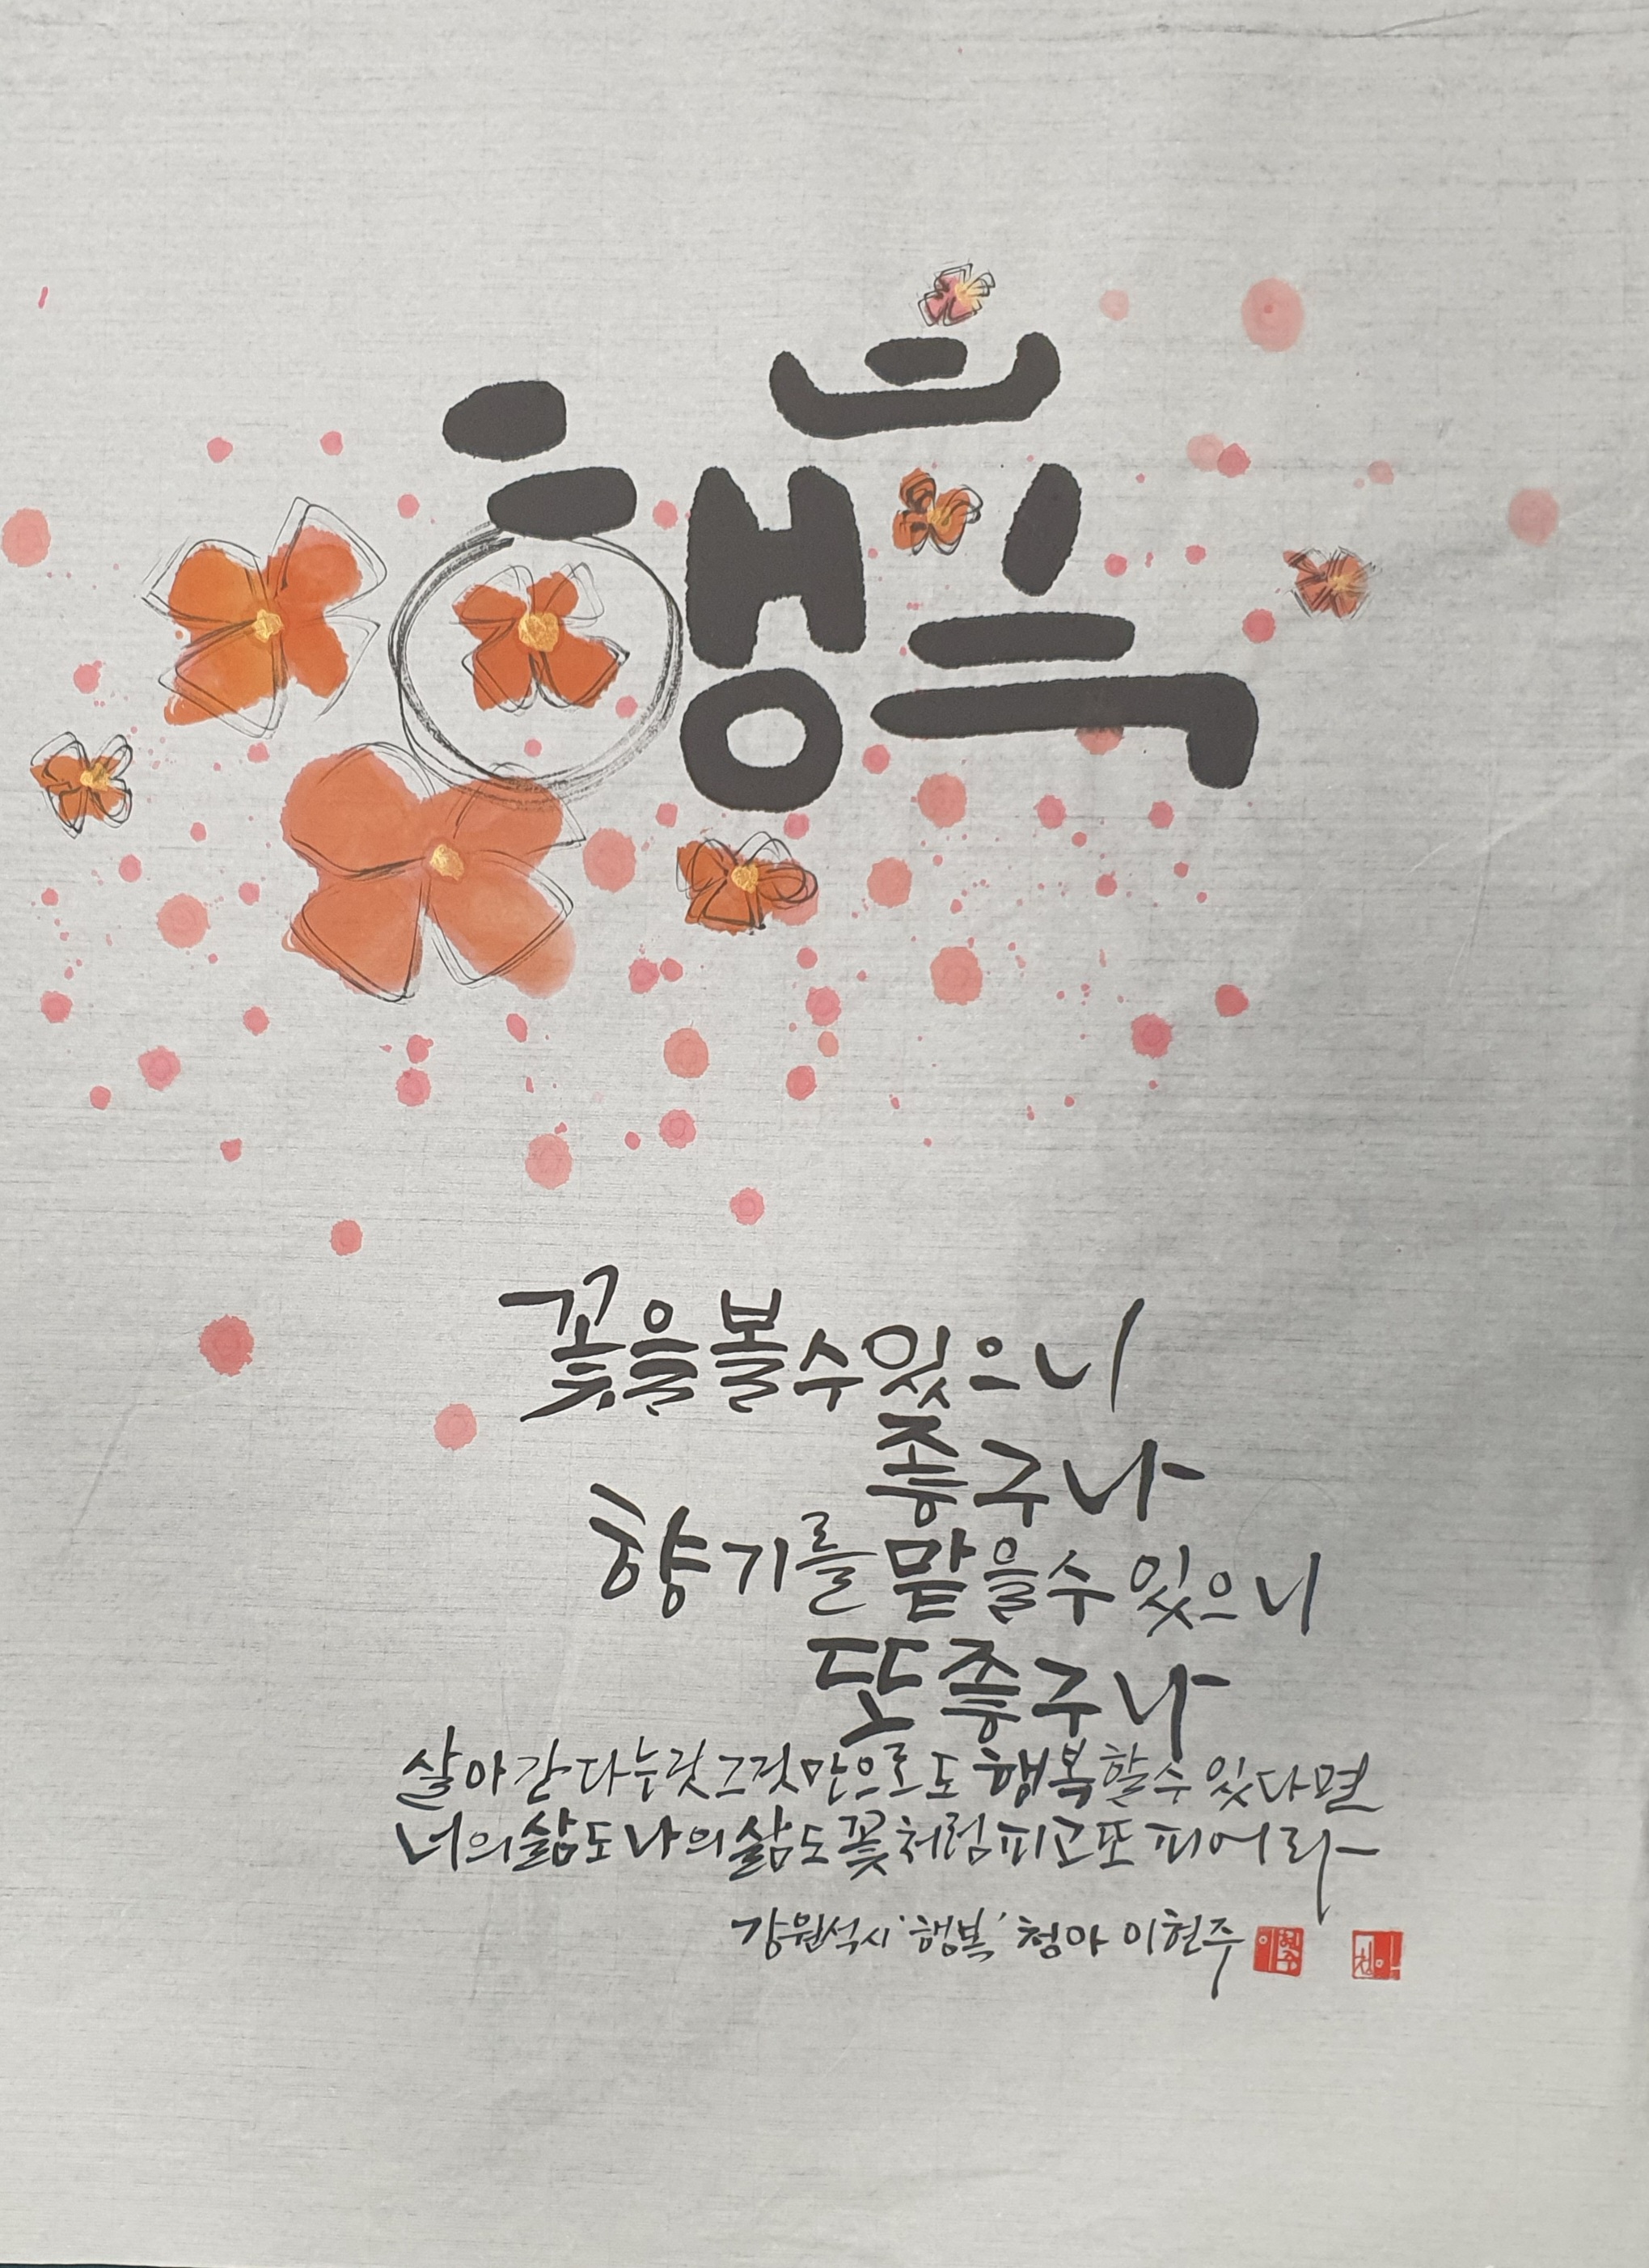 행복
꽃을 볼 수 있으니
좋구나
향기를 맡을 수 있으니
또 좋구나
살아간다는 것 그것만으로도 행복할 수 있다면
너의 삶도 나의 삶도 꽃처럼 피고 또 피어라
강원석 시 '행복' 청아 이현주 이현주 청아